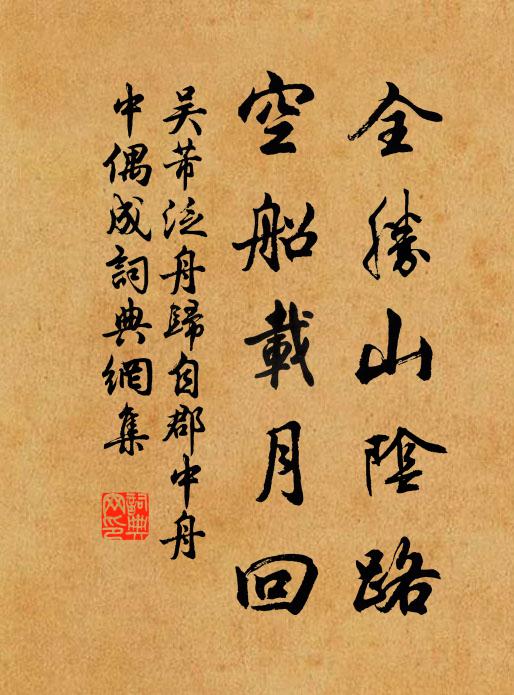 全勝山陰路
空船載月回
吳芾泛舟歸自郡中舟
中偶成詞典網集
詞典
网印